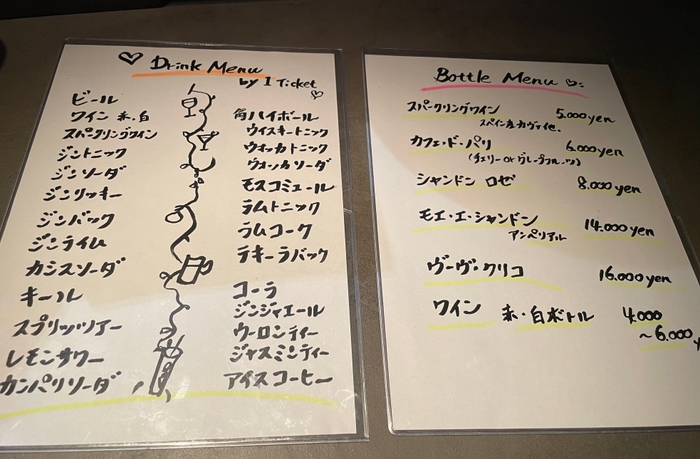 Drink Menu
by 1 Ticket
ビール
ワイン 赤・白
スパークリングワイン
ジントニック
ジンソーダ
ジンリッキー
ジンバック
ジンライム
カシスソーダ
キール
スプリッツァー
レモンサワー
カンパリソーダ
角ハイボール
ウイスキートニック
ウォッカトニック
ウォッカソーダ
モスコミュール
ラムトニック
ラムコーク
テキーラバック
コーラ
ジンジャエール
ウーロンティー
ジャスミンティー
アイスコーヒー
Bottle Menu
スパークリングワイン 5.000yen
スペイン産カヴァ他.
カフェ・ド・パリ 6.000yen
(チェリー or グレープフルーツ)
シャンドン ロゼ 8.000yen
モエ・エ・シャンドン 14.000yen
アンペリアル
ヴーヴ・クリコ 16.000yen
ワイン 赤・白ボトル 4.000
~6.000y